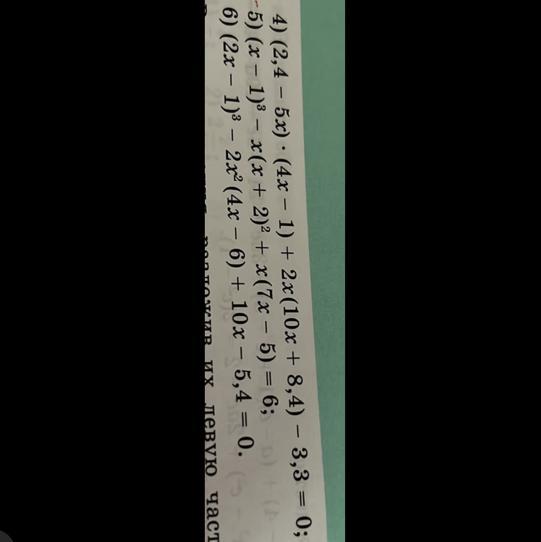 4) (2,4 − 5x) · (4x − 1) + 2x(10x + 8,4) − 3,3 = 0;
5) (x − 1)³ − x(x + 2)² + x(7x − 5) = 6;
6) (2x − 1)³ − 2x²(4x − 6) + 10x − 5,4 = 0.
разложив их левую част